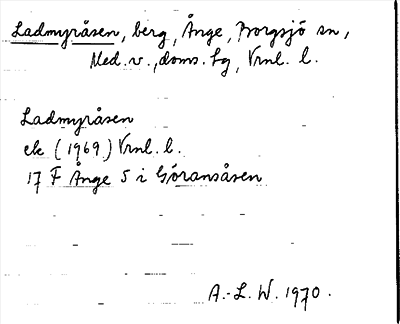 Ladmyråsen, berg, Ånge, Borgsjö sn,
Med. v., doms. lg, Vrnl. l.
Ladmyråsen
ek (1969) Vrnl. l.
17 F Ånge S i Göransåsen
A.-L. W. 1970.